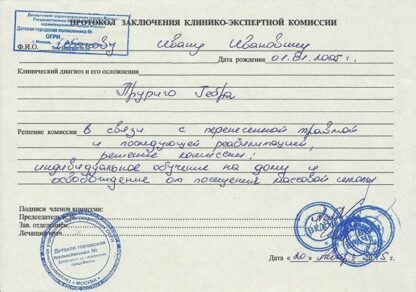 ПРОТОКОЛ ЗАКЛЮЧЕНИЯ КЛИНИКО-ЭКСПЕРТНОЙ КОМИССИИ
Детская городская поликлиника №
ОГРН
г. Москва,
Ф.И.О. Иванову Ивану Ивановичу
Дата рождения 01.01.2005 г.
Клинический диагноз и его осложнения
Пруриго Гебра
Решение комиссии в связи с перенесенной травмой
и последующей реабилитацией,
решение комиссии:
индивидуальное обучение на дому и
освобождение от посещения массовой школы
Подписи членов комиссии:
Председатель
Зав. отделением
Лечащий врач
Детская городская
поликлиника №
МОСКВА
ВРАЧ
Дата «20»